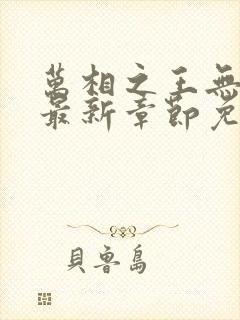 萬相之王無
最新章節免
貝魯島